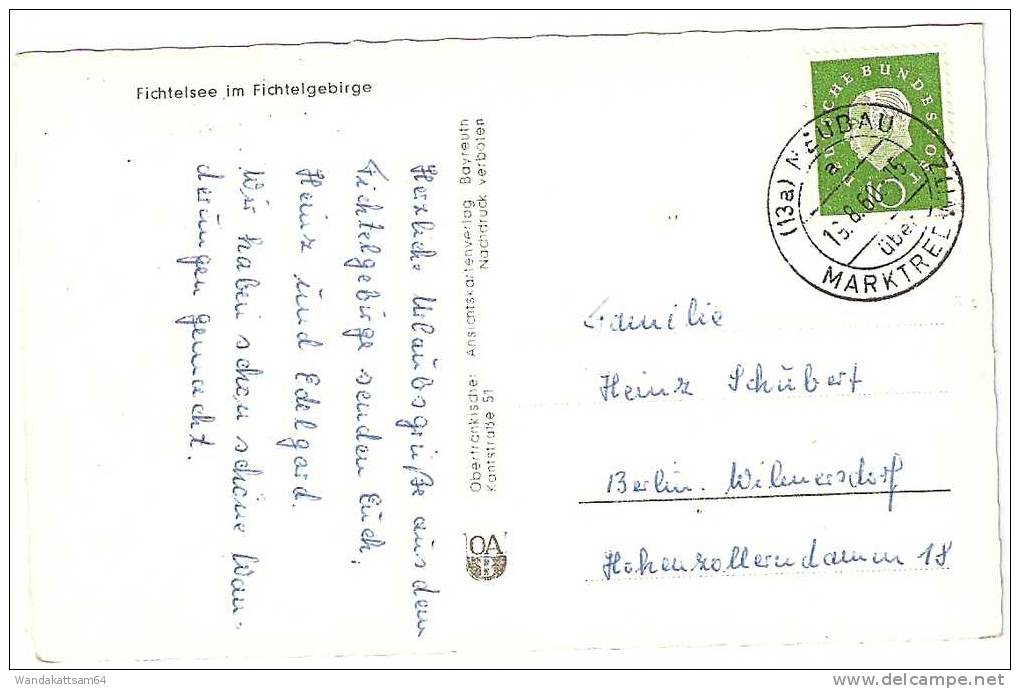 Fichtelsee im Fichtelgebirge
Herzliche Urlaubsgrüße aus dem
Fichtelgebirge senden Euch,
Heinz und Edelgard.
Wir haben schon schöne Wan-
derungen gemacht.
Oberfränkischer Ansichtskartenverlag Bayreuth
Kantstraße 51 Nachdruck verboten
OA
DEUTSCHE BUNDESPOST
10
(13a) NEUBAU
a
.8.60.-15
über
MARKTREDWITZ
Familie
Heinz Schubert
Berlin-Wilmersdorf
Hohenzollerndamm 18
Wandakattsam64
www.delcampe.net